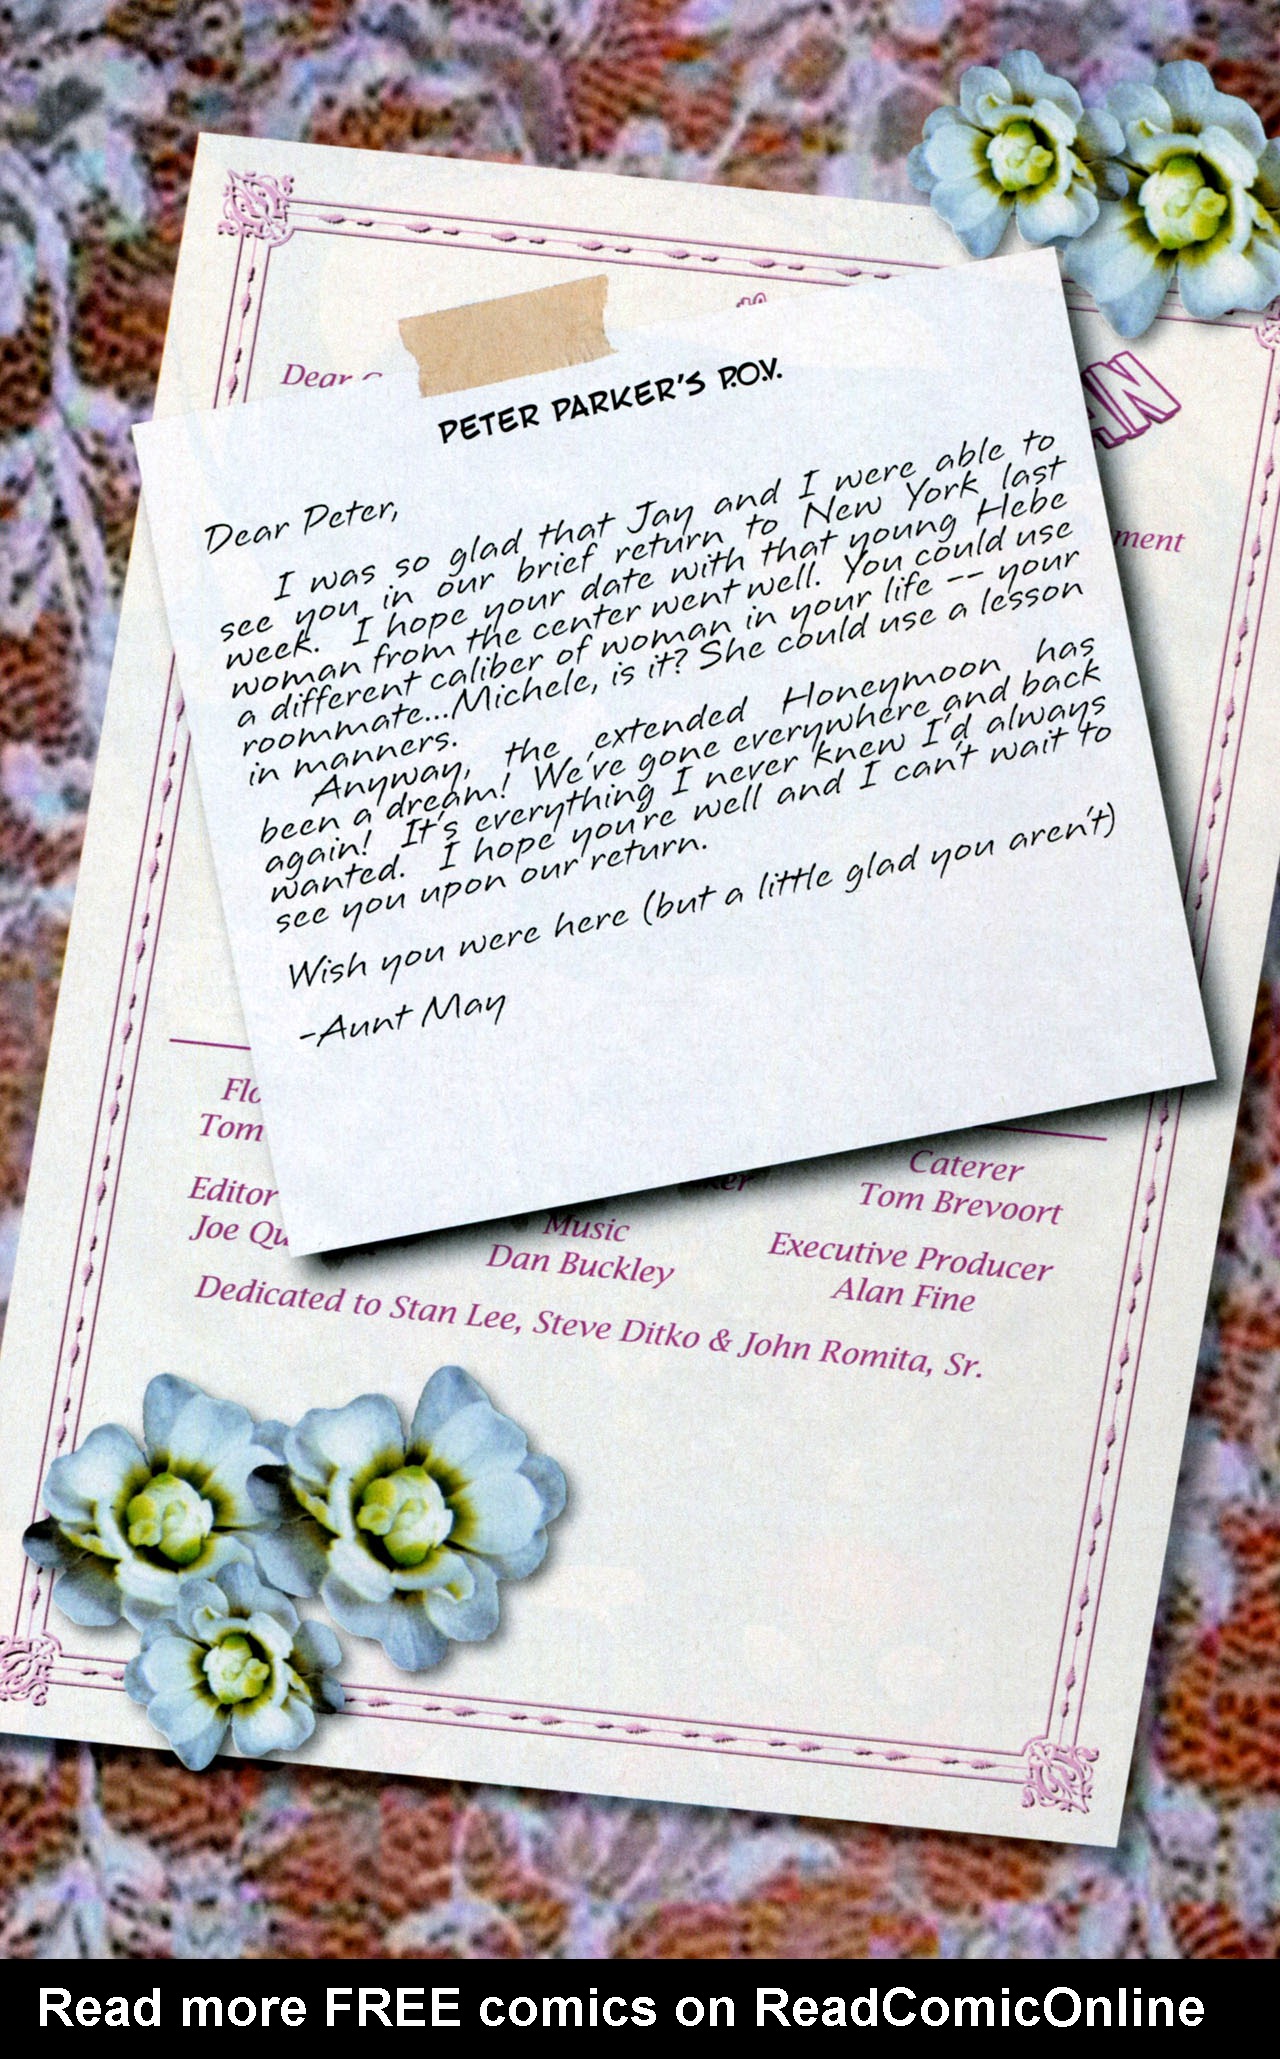 Dear
AN
PETER PARKER'S P.O.V.
Dear Peter,
I was so glad that Jay and I were able to
see you in our brief return to New York last
week. I hope your date with that young Hebe
woman from the center went well. You could use
a different caliber of woman in your life -- your
roommate...Michele, is it? She could use a lesson
in manners.
Anyway, the extended Honeymoon has
been a dream! We've gone everywhere and back
again! It's everything I never knew I'd always
wanted. I hope you're well and I can't wait to
see you upon our return.
Wish you were here (but a little glad you aren't)
-Aunt May
ment
Flo
Tom
Caterer
Tom Brevoort
Editor
Joe Qu
ker
Music
Dan Buckley
Executive Producer
Alan Fine
Dedicated to Stan Lee, Steve Ditko & John Romita, Sr.
Read more FREE comics on ReadComicOnline